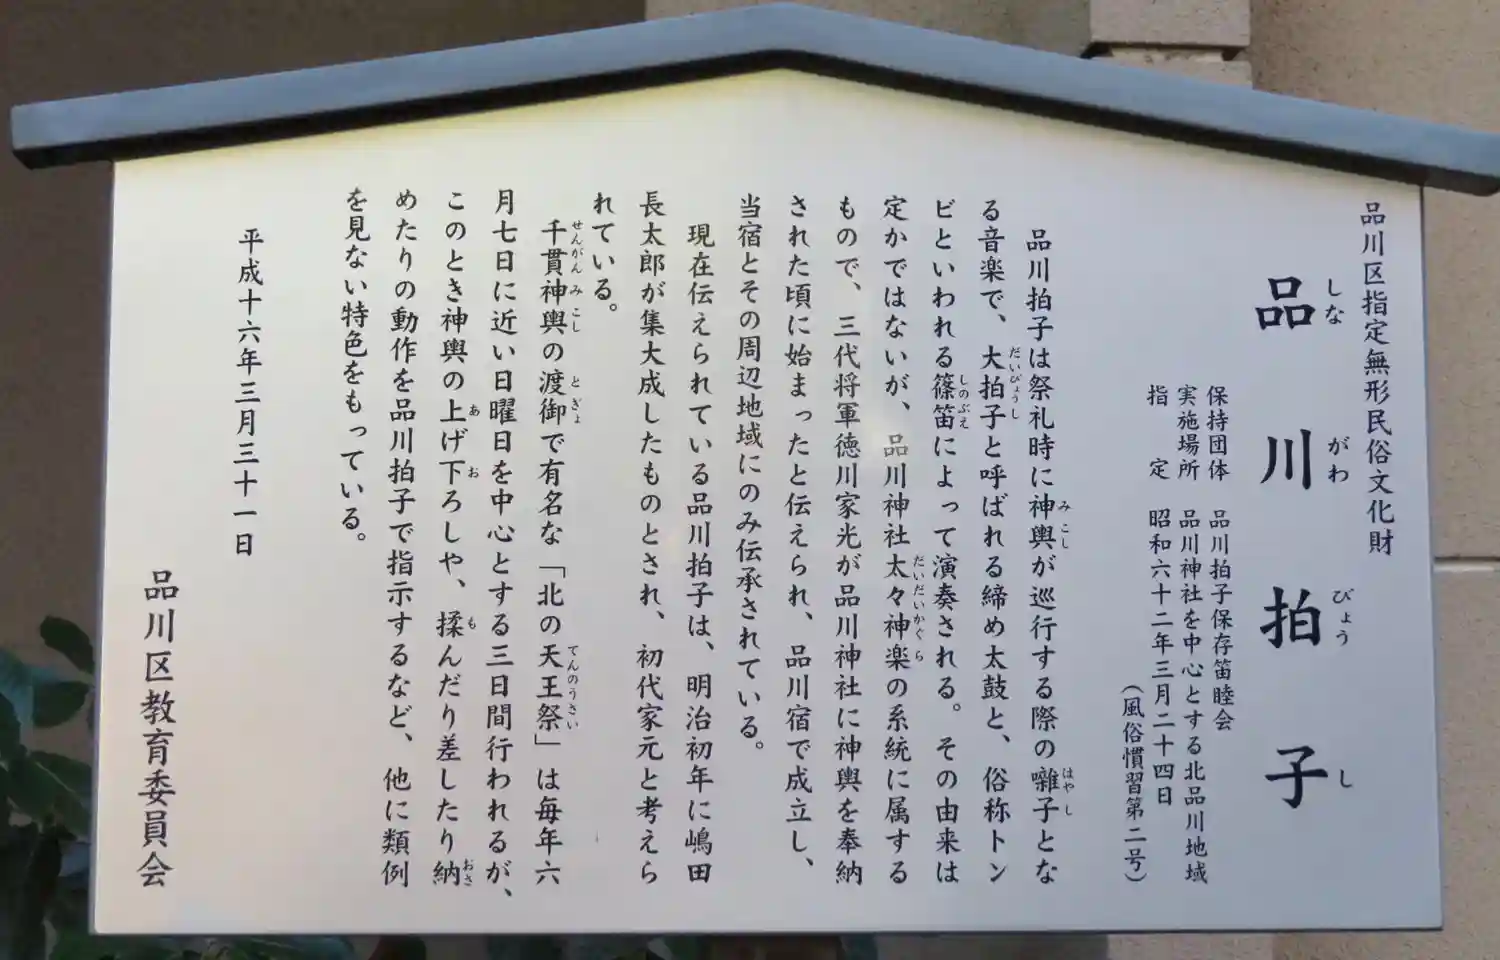 品川区指定無形民俗文化財
品川拍子
しながわびょうし
保持団体 品川拍子保存笛睦会
実施場所 品川神社を中心とする北品川地域
指定 昭和六十二年三月二十四日
(風俗慣習第二号)
品川拍子は祭礼時に神輿が巡行する際の囃子とな
みこし はやし
る音楽で、大拍子と呼ばれる締め太鼓と、俗称トン
だいびょうし
ビといわれる篠笛によって演奏される。その由来は
しのぶえ
定かではないが、品川神社太々神楽の系統に属する
だいだいかぐら
もので、三代将軍徳川家光が品川神社に神輿を奉納
された頃に始まったと伝えられ、品川宿で成立し、
当宿とその周辺地域にのみ伝承されている。
現在伝えられている品川拍子は、明治初年に嶋田
長太郎が集大成したものとされ、初代家元と考えら
れている。
千貫神輿の渡御で有名な「北の天王祭」は毎年六
せんがんみこし とぎょ てんのうさい
月七日に近い日曜日を中心とする三日間行われるが、
このとき神輿の上げ下ろしや、揉んだり差したり納
あ お も おさ
めたりの動作を品川拍子で指示するなど、他に類例
を見ない特色をもっている。
平成十六年三月三十一日
品川区教育委員会